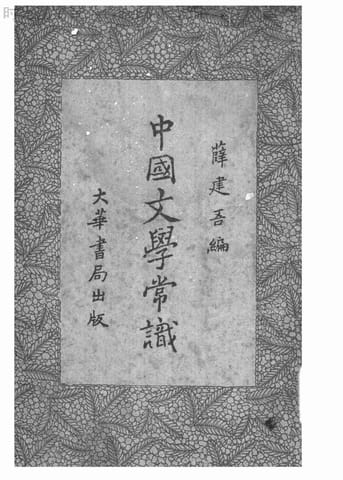 薛建吾編
中國文學常識
大華書局出版